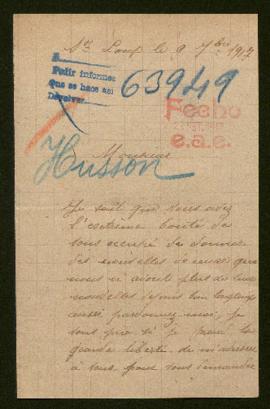 St Loup le 9 7bre 1917
Pedir informes
que se hace así
Devolver
63949
Fecho
e.a.e.
Husson
Monsieur
Je sait que vous avez
l'extrême bonté de
vous occupé de donner
des nouvelles de ceux que
nous n'avons plus de leur
nouvelles depuis bon longtemps
aussi pardonnez moi, je
vous prie si je prend la
grande liberté de m'adresser
à vous pour vous demander